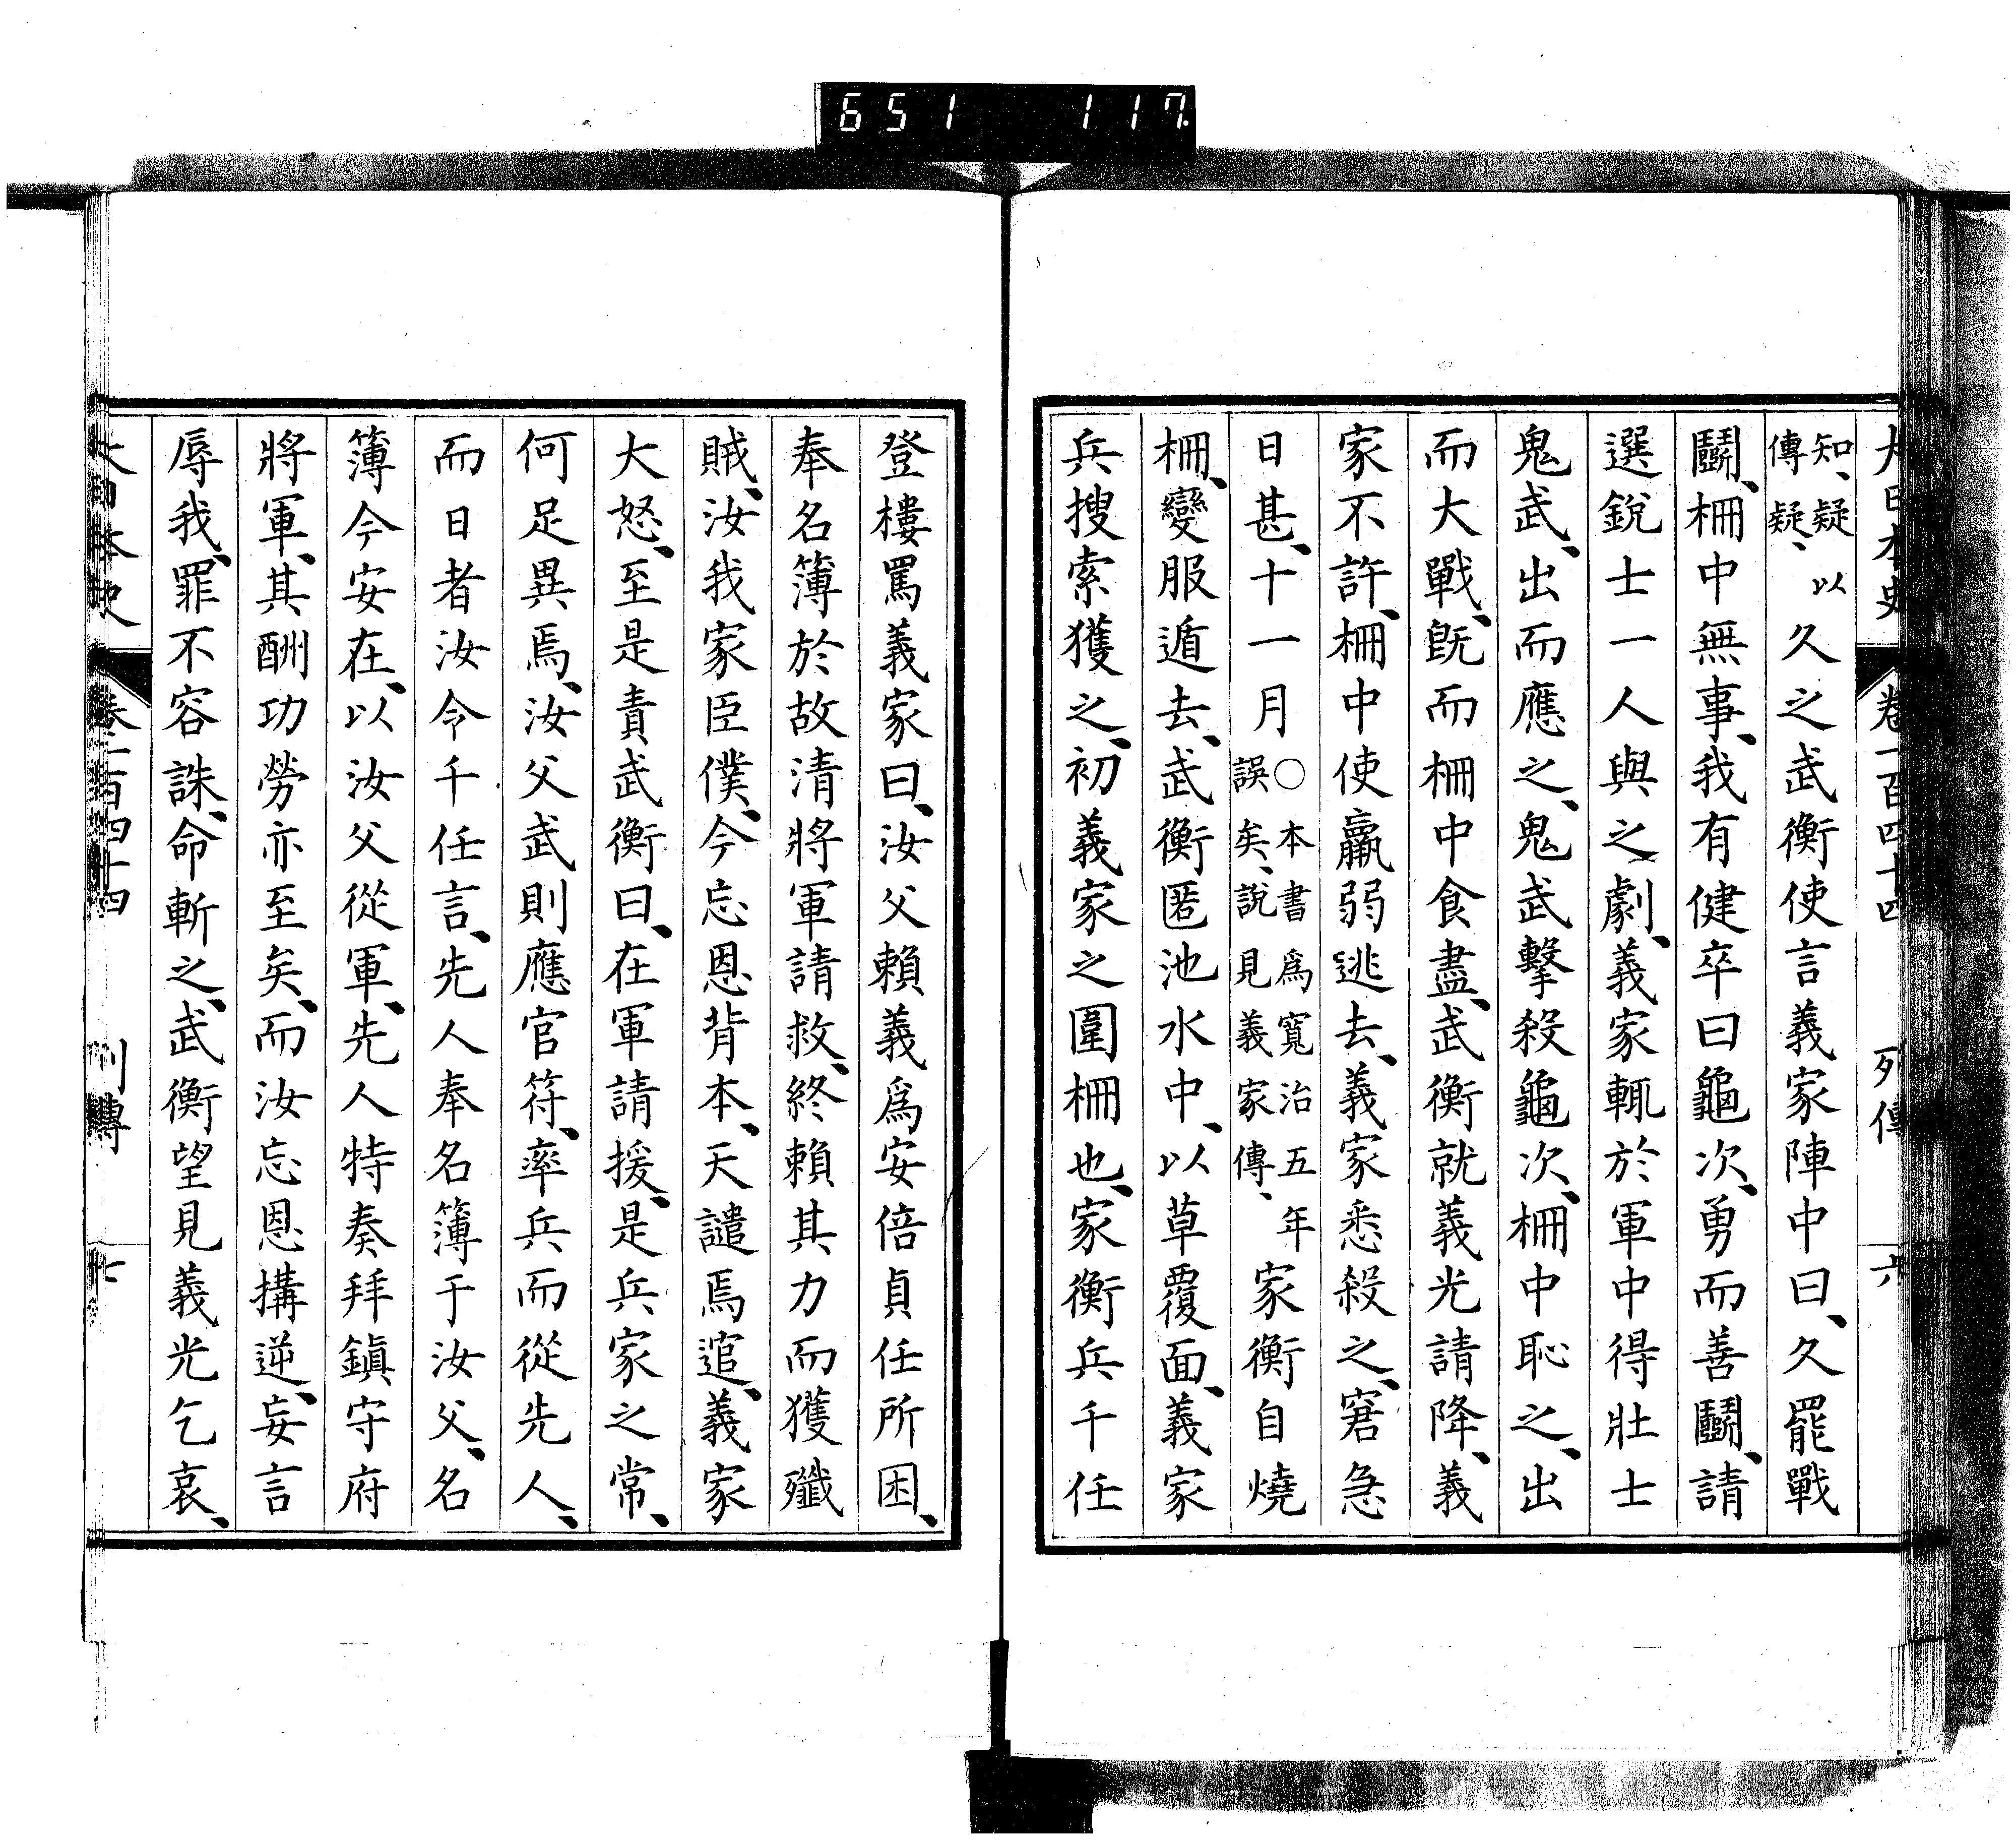 651 117.
大日本史 卷一百四十四 列傳 六
知、疑以
傳疑、
久之武衡使言義家陣中曰、久罷戰
鬬、柵中無事、我有健卒曰龜次、勇而善鬬、請
選銳士一人與之劇、義家輒於軍中得壯士
鬼武、出而應之、鬼武擊殺龜次、柵中恥之、出
而大戰、旣而柵中食盡、武衡就義光請降、義
家不許、柵中使羸弱逃去、義家悉殺之、窘急
日甚、十一月
○本書爲寬治五年
誤矣、說見義家傳、
家衡自燒
柵、變服遁去、武衡匿池水中、以草覆面、義家
兵搜索獲之、初義家之圍柵也、家衡兵千任
登樓罵義家曰、汝父賴義爲安倍貞任所困、
奉名簿於故清將軍請救、終賴其力而獲殲
賊、汝我家臣僕、今忘恩背本、天譴焉逭、義家
大怒、至是責武衡曰、在軍請援、是兵家之常、
何足異焉、汝父武則應官符、率兵而從先人、
而日者汝令千任言、先人奉名簿于汝父、名
簿今安在、以汝父從軍、先人特奏拜鎭守府
將軍、其酬功勞亦至矣、而汝忘恩搆逆、妄言
辱我、罪不容誅、命斬之、武衡望見義光乞哀、
大日本史 卷一百四十四 列傳 七